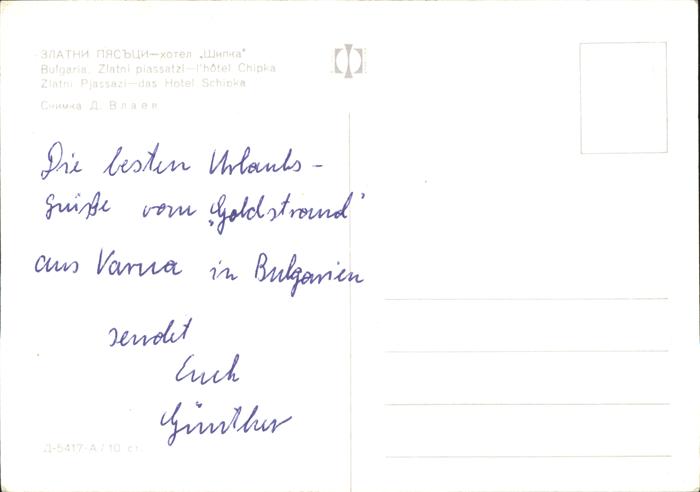 ЗЛАТНИ ПЯСЪЦИ—хотел „Шипка“
Bulgaria. Zlatni piassatzi—l'hôtel Chipka
Zlatni Pjassazi—das Hotel Schipka
Снимка Д. Влаев
Die besten Urlaubs-
grüße vom „Goldstrand"
aus Varna in Bulgarien
sendet
Euch
Günther
Д-5417-А/10 ст.